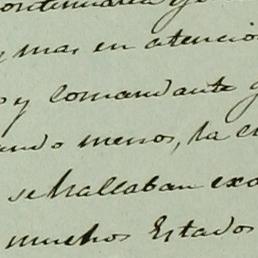 y mas en atenció
y comandante g
ando menos, la c
se hallaban exa
muchos Estados